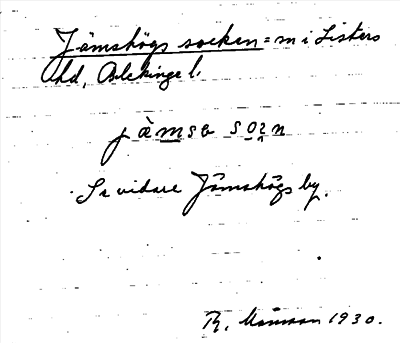 Jämshögs socken = m i Listers
hd, Blekinge l.
jàmsɵ sozn
Se vidare Jämshögs by.
1930.